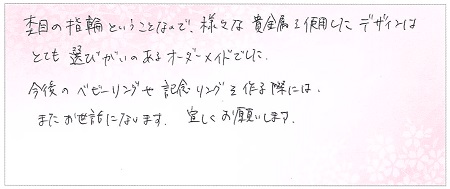 杢目の指輪ということなので、様々な貴金属を使用したデザインは
とても選びがいのあるオーダーメイドでした。
今後のベビーリングや記念リングを作る際には、
またお世話になります。宜しくお願いします。